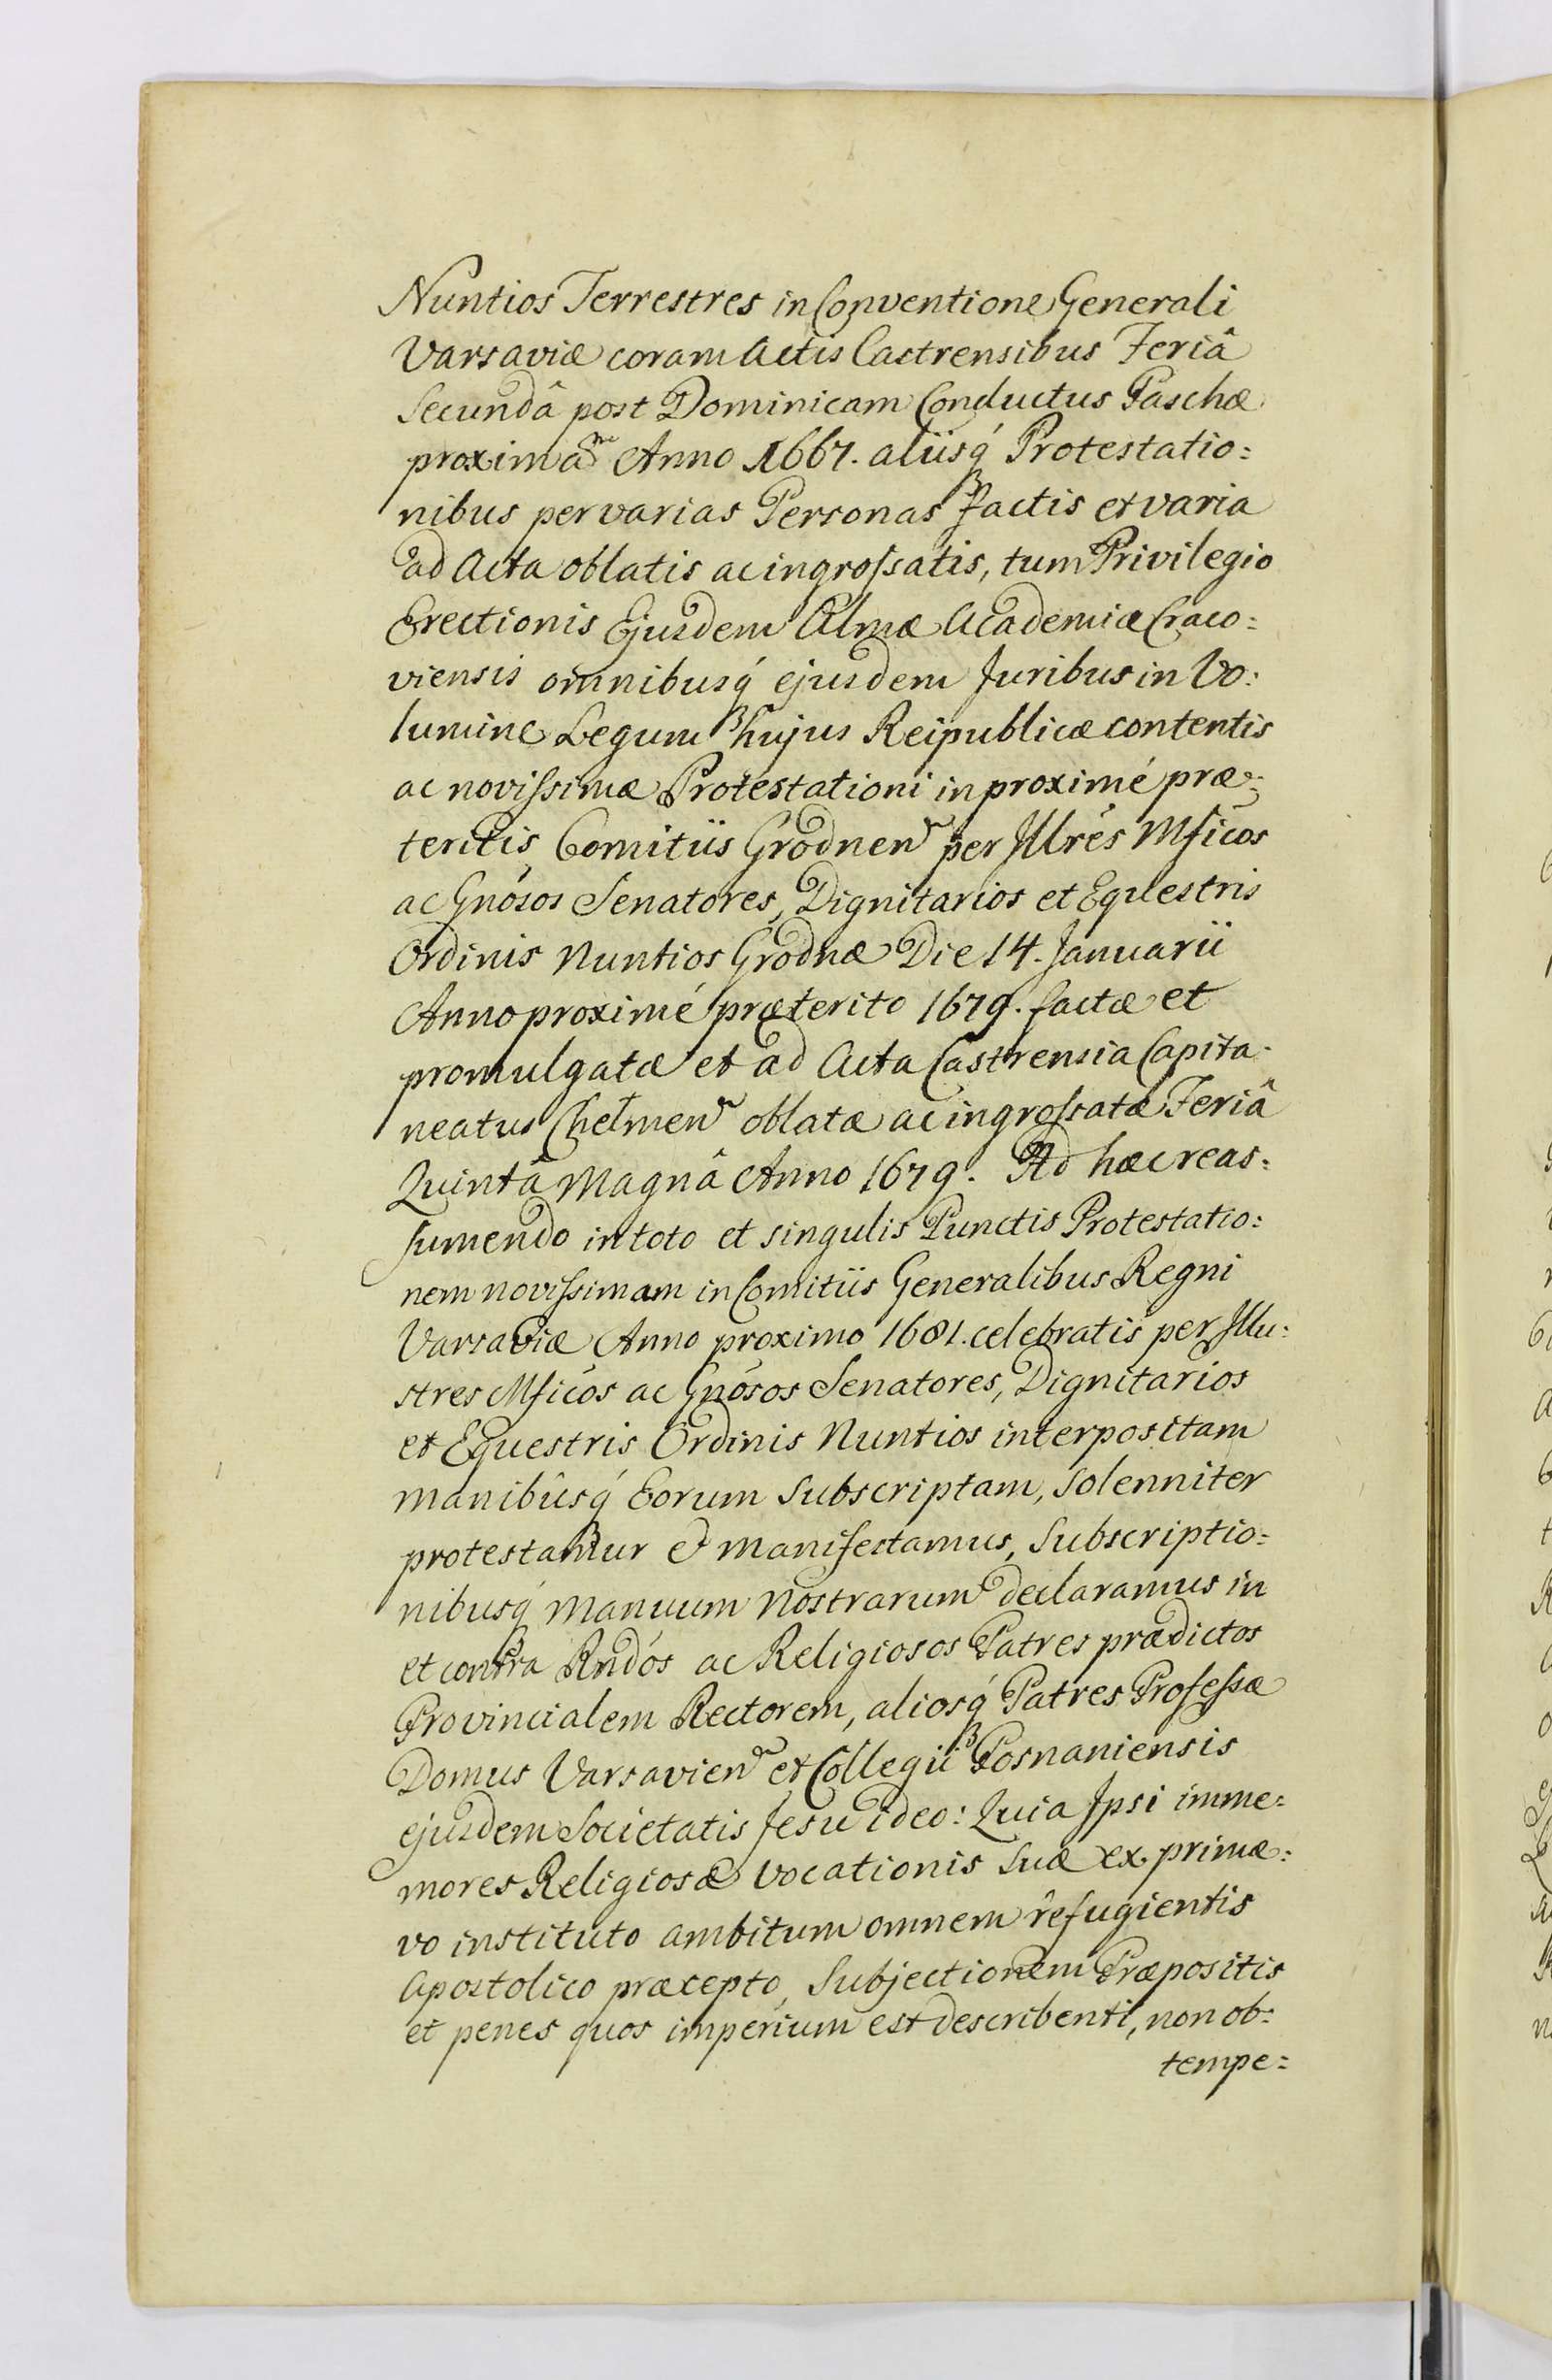 Nuntios Terrestres in Conventione Generali
Varsaviæ coram Actis Castrensibus Feriâ
Secundâ post Dominicam Conductus Paschæ
proximam Anno 1667. aliisq́ Protestatio:
nibus per varias Personas factis et varia
ad Acta oblatis ac ingroſsatis, tum Privilegio
Erectionis Ejusdem Almæ Academiæ Craco:
viensis omnibusq́ ejusdem Juribus in Vo:
lumine Legum hujus Reipublicæ contentis
ac noviſsimæ Protestationi in proximé præ:
teritis Comitiis Grodnen̄ per Illrẽs Mficos
ac Gnósos Senatores, Dignitarios et Equestris
Ordinis Nuntios Grodnæ Die 14. Januarii
Anno proximé præterito 1679. factæ et
promulgatæ et ad Acta Castrensia Capita:
neatus Chelmen̄ oblatæ ac ingroſsatæ Feriâ
Quintâ Magnâ Anno 1679. Ad hæc reas:
sumendo in toto et singulis Punctis Protestatio:
nem noviſsimam in Comitiis Generalibus Regni
Varsaviæ Anno proximo 1681. celebratis per Illu:
stres Mficos ac Gnósos Senatores, Dignitarios
et Equestris Ordinis Nuntios interpositam
manibûsq́ Eorum Subscriptam, Solenniter
protestamur & manifestamus, Subscriptio:
nibusq́ Manuum Nostrarum declaramus in
et contra Rndós ac Religiosos Patres prædictos
Provincialem Rectorem, aliosq́ Patres Profeſsæ
Domus Varsavien̄ et Collegii Posnaniensis
ejusdem Societatis Jesu ideo: Quia Ipsi imme:
mores Religiosæ Vocationis Suæ ex primæ:
vo instituto ambitum omnem refugientis
Apostolico præcepto, Subjectionem Præpositis
et penes quos imperium est describenti, non ob:
tempe: